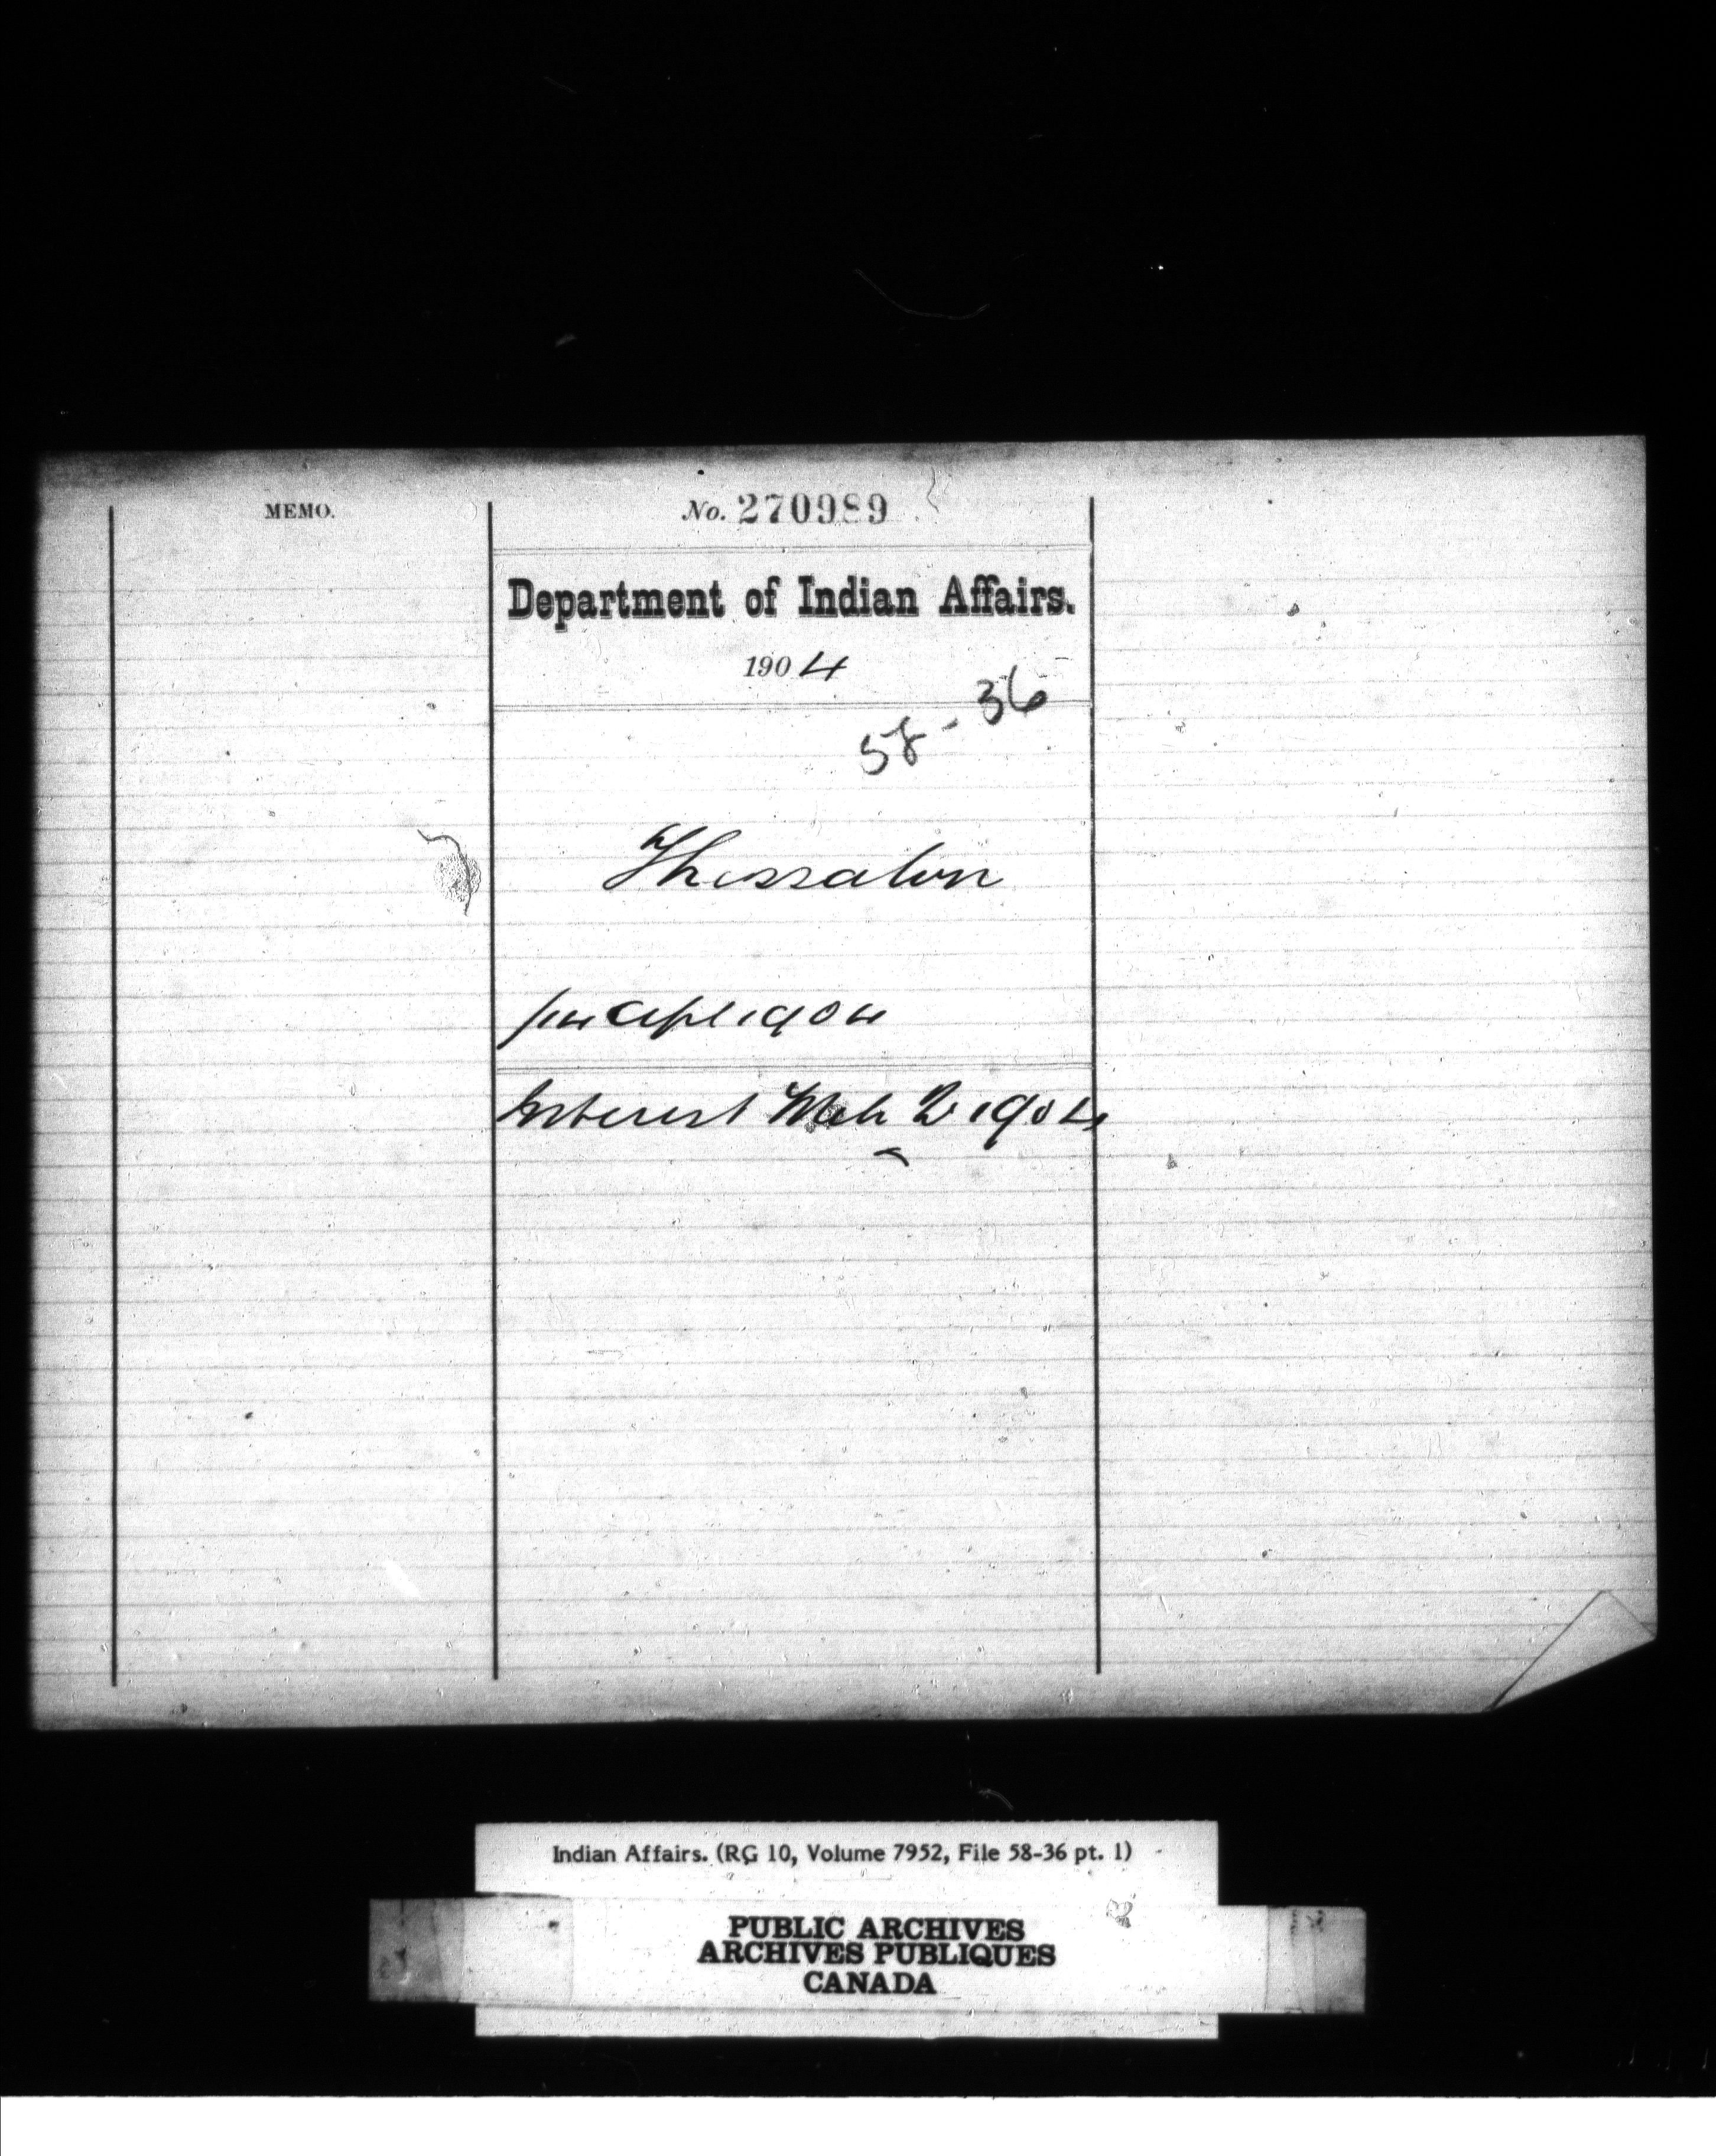 MEMO.
No. 270989
Department of Indian Affairs.
1904
58-36
Thessalon
Apl 1904
Interest Mch 2 1904
Indian Affairs. (RG 10, Volume 7952, File 58-36 pt. 1)
PUBLIC ARCHIVES
ARCHIVES PUBLIQUES
CANADA